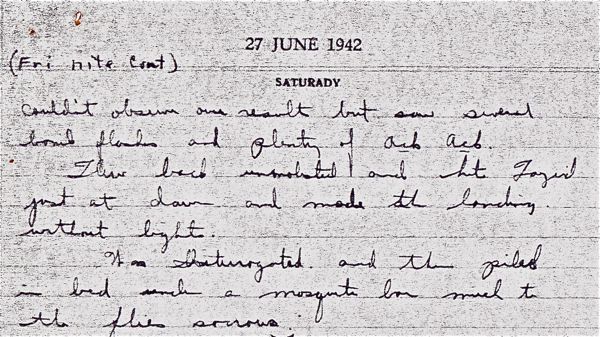 27 JUNE 1942
(Fri nite Cont)
SATURADY
Couldn't observe our result but saw several
bomb flashes and plenty of Ack Ack.
Flew back unmolested and hit Fayid
just at dawn and made the landing
without lights.
Was Interrogated and then piled
in bed under a mosquito bar much to
the flies sorrows.